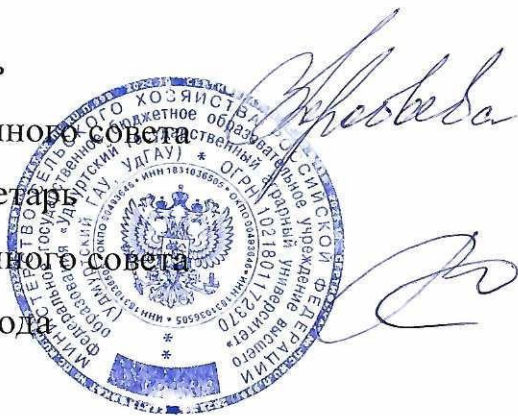 ь
нного совета
етарь
нного совета
ода
МИНИСТЕРСТВО СЕЛЬСКОГО ХОЗЯЙСТВА РОССИЙСКОЙ ФЕДЕРАЦИИ
Федеральное государственное бюджетное образовательное учреждение высшего
образования «Удмуртский государственный аграрный университет»
(Удмуртский ГАУ, УдГАУ) * ОГРН 1021801172370
* ИНН 1831036505 * ОКПО 00493646